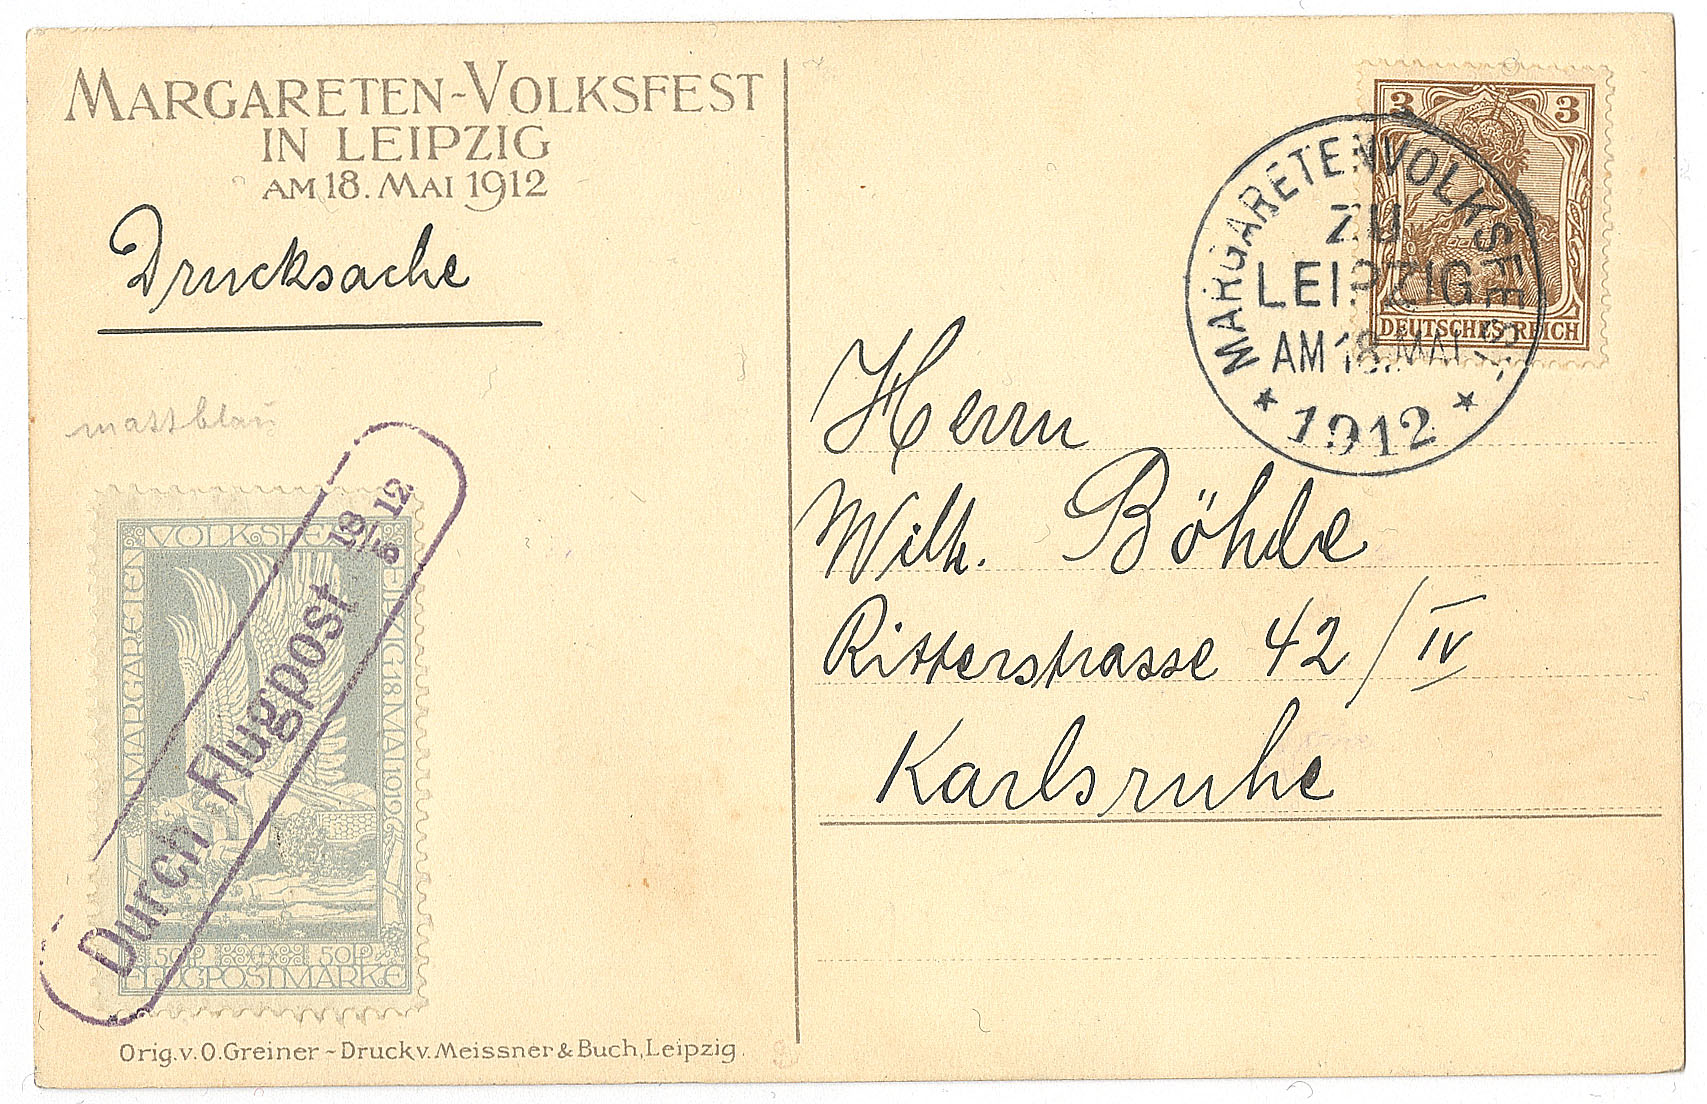 MARGARETEN-VOLKSFEST
IN LEIPZIG
AM 18. MAI 1912
Drucksache
mattblau
VOLKSFE
MARGARETEN
LEIPZIG 18 MAI 1912
50 P. 50 P.
FLUGPOSTMARKE
Durch Flugpost 18/5 12
Orig. v. O. Greiner - Druck v. Meissner & Buch, Leipzig.
3 3
DEUTSCHES REICH
MARGARETENVOLKSFEST
ZU
LEIPZIG
AM 18. MAI
* 1912 *
Herrn
Wilh. Böhde
Ritterstrasse 42 / IV
Karlsruhe